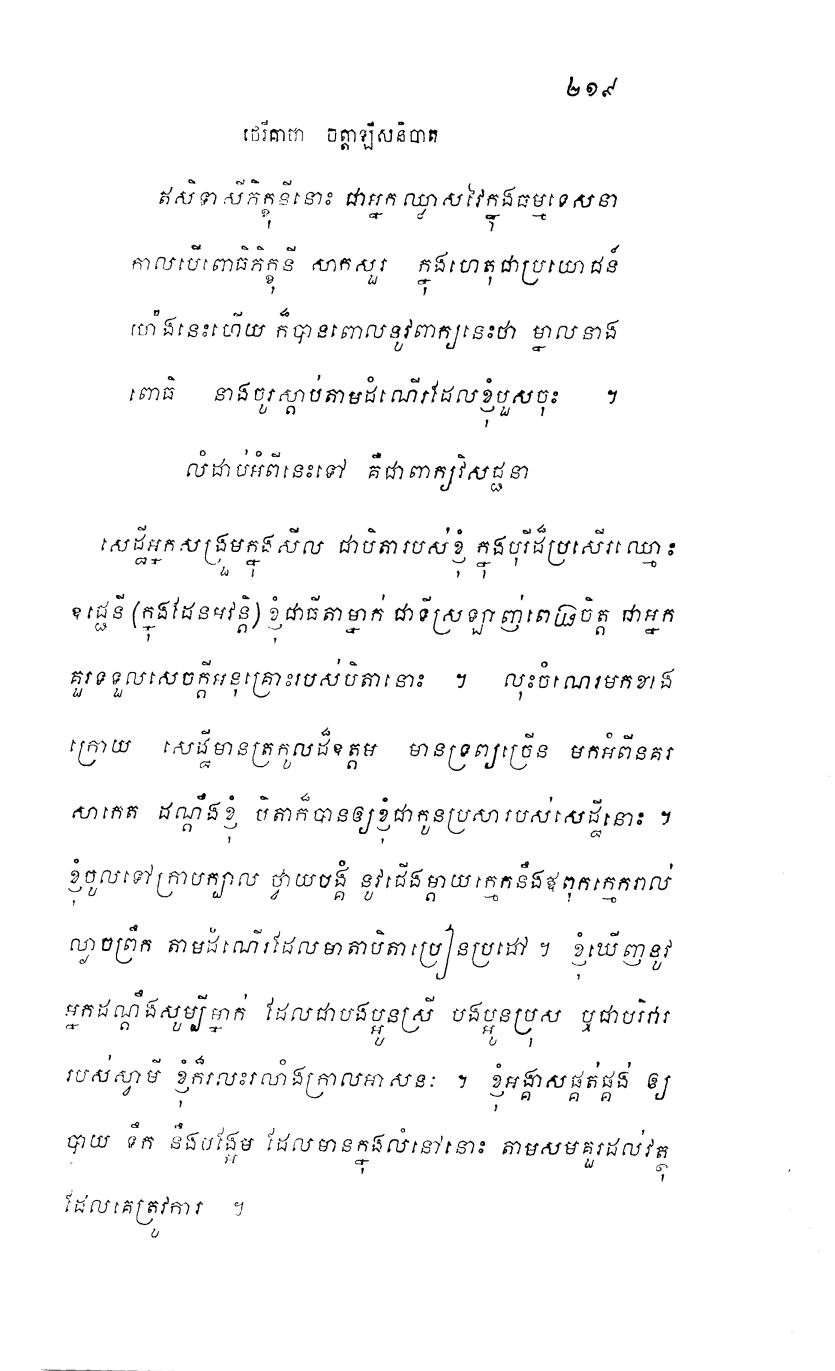 ២១៩
ថេរីគាថា ចត្តាឡីសនិបាត
ឥសិទាសីភិក្ខុនីនោះ ជាអ្នកឈ្លាសវៃក្នុងធម្មទេសនា
កាលបើពោធិភិក្ខុនី សាកសួរ ក្នុងហេតុជាប្រយោជន៍
ហ៎ងនេះហើយ ក៏បានពោលនូវពាក្យនេះថា ម្នាលនាង
ពោធិ នាងចូរស្តាប់តាមដំណើរដែលខ្ញុំបួសចុះ ។
លំដាប់អំពីនេះទៅ គឺជាពាក្យវិសជ្ជនា
សេដ្ឋីអ្នកសង្រួមក្នុងសីល ជាបិតារបស់ខ្ញុំ ក្នុងបុរីដ៏ប្រសើរឈ្មោះ
ឧជ្ជេនី (ក្នុងដែនអវន្តិ) ខ្ញុំជាធីតាម្នាក់ ជាទីស្រឡាញ់ពេញចិត្ត ជាអ្នក
គួរទទួលសេចក្តីអនុគ្រោះរបស់បិតានោះ ។ លុះចំណេរមកខាង
ក្រោយ សេដ្ឋីមានត្រកូលដ៏ឧត្តម មានទ្រព្យច្រើន មកអំពីនគរ
សាកេត ដណ្តឹងខ្ញុំ បិតាក៏បានឲ្យខ្ញុំជាកូនប្រសារបស់សេដ្ឋីនោះ ។
ខ្ញុំចូលទៅក្រាបក្បាល ថ្វាយបង្គំ នូវជើងម្តាយក្មេកនឹងឪពុកក្មេករាល់
ល្ងាចព្រឹក តាមដំណើរដែលមាតាបិតាប្រៀនប្រដៅ ។ ខ្ញុំឃើញនូវ
អ្នកដណ្តឹងសូម្បីម្នាក់ ដែលជាបងប្អូនស្រី បងប្អូនប្រុស ឬជាបរិវារ
របស់ស្វាមី ខ្ញុំក៏រលះរលាំងក្រាលអាសនៈ ។ ខ្ញុំអង្គាសផ្គត់ផ្គង់ ឲ្យ
បាយ ទឹក នឹងបង្អែម ដែលមានក្នុងលំនៅនោះ តាមសមគួរដល់វត្ថុ
ដែលគេត្រូវការ ។